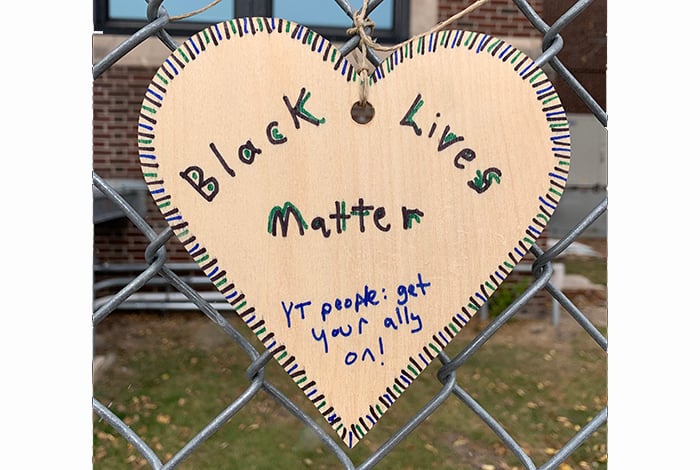 Black Lives
Matter
YT people: get
your ally
on!